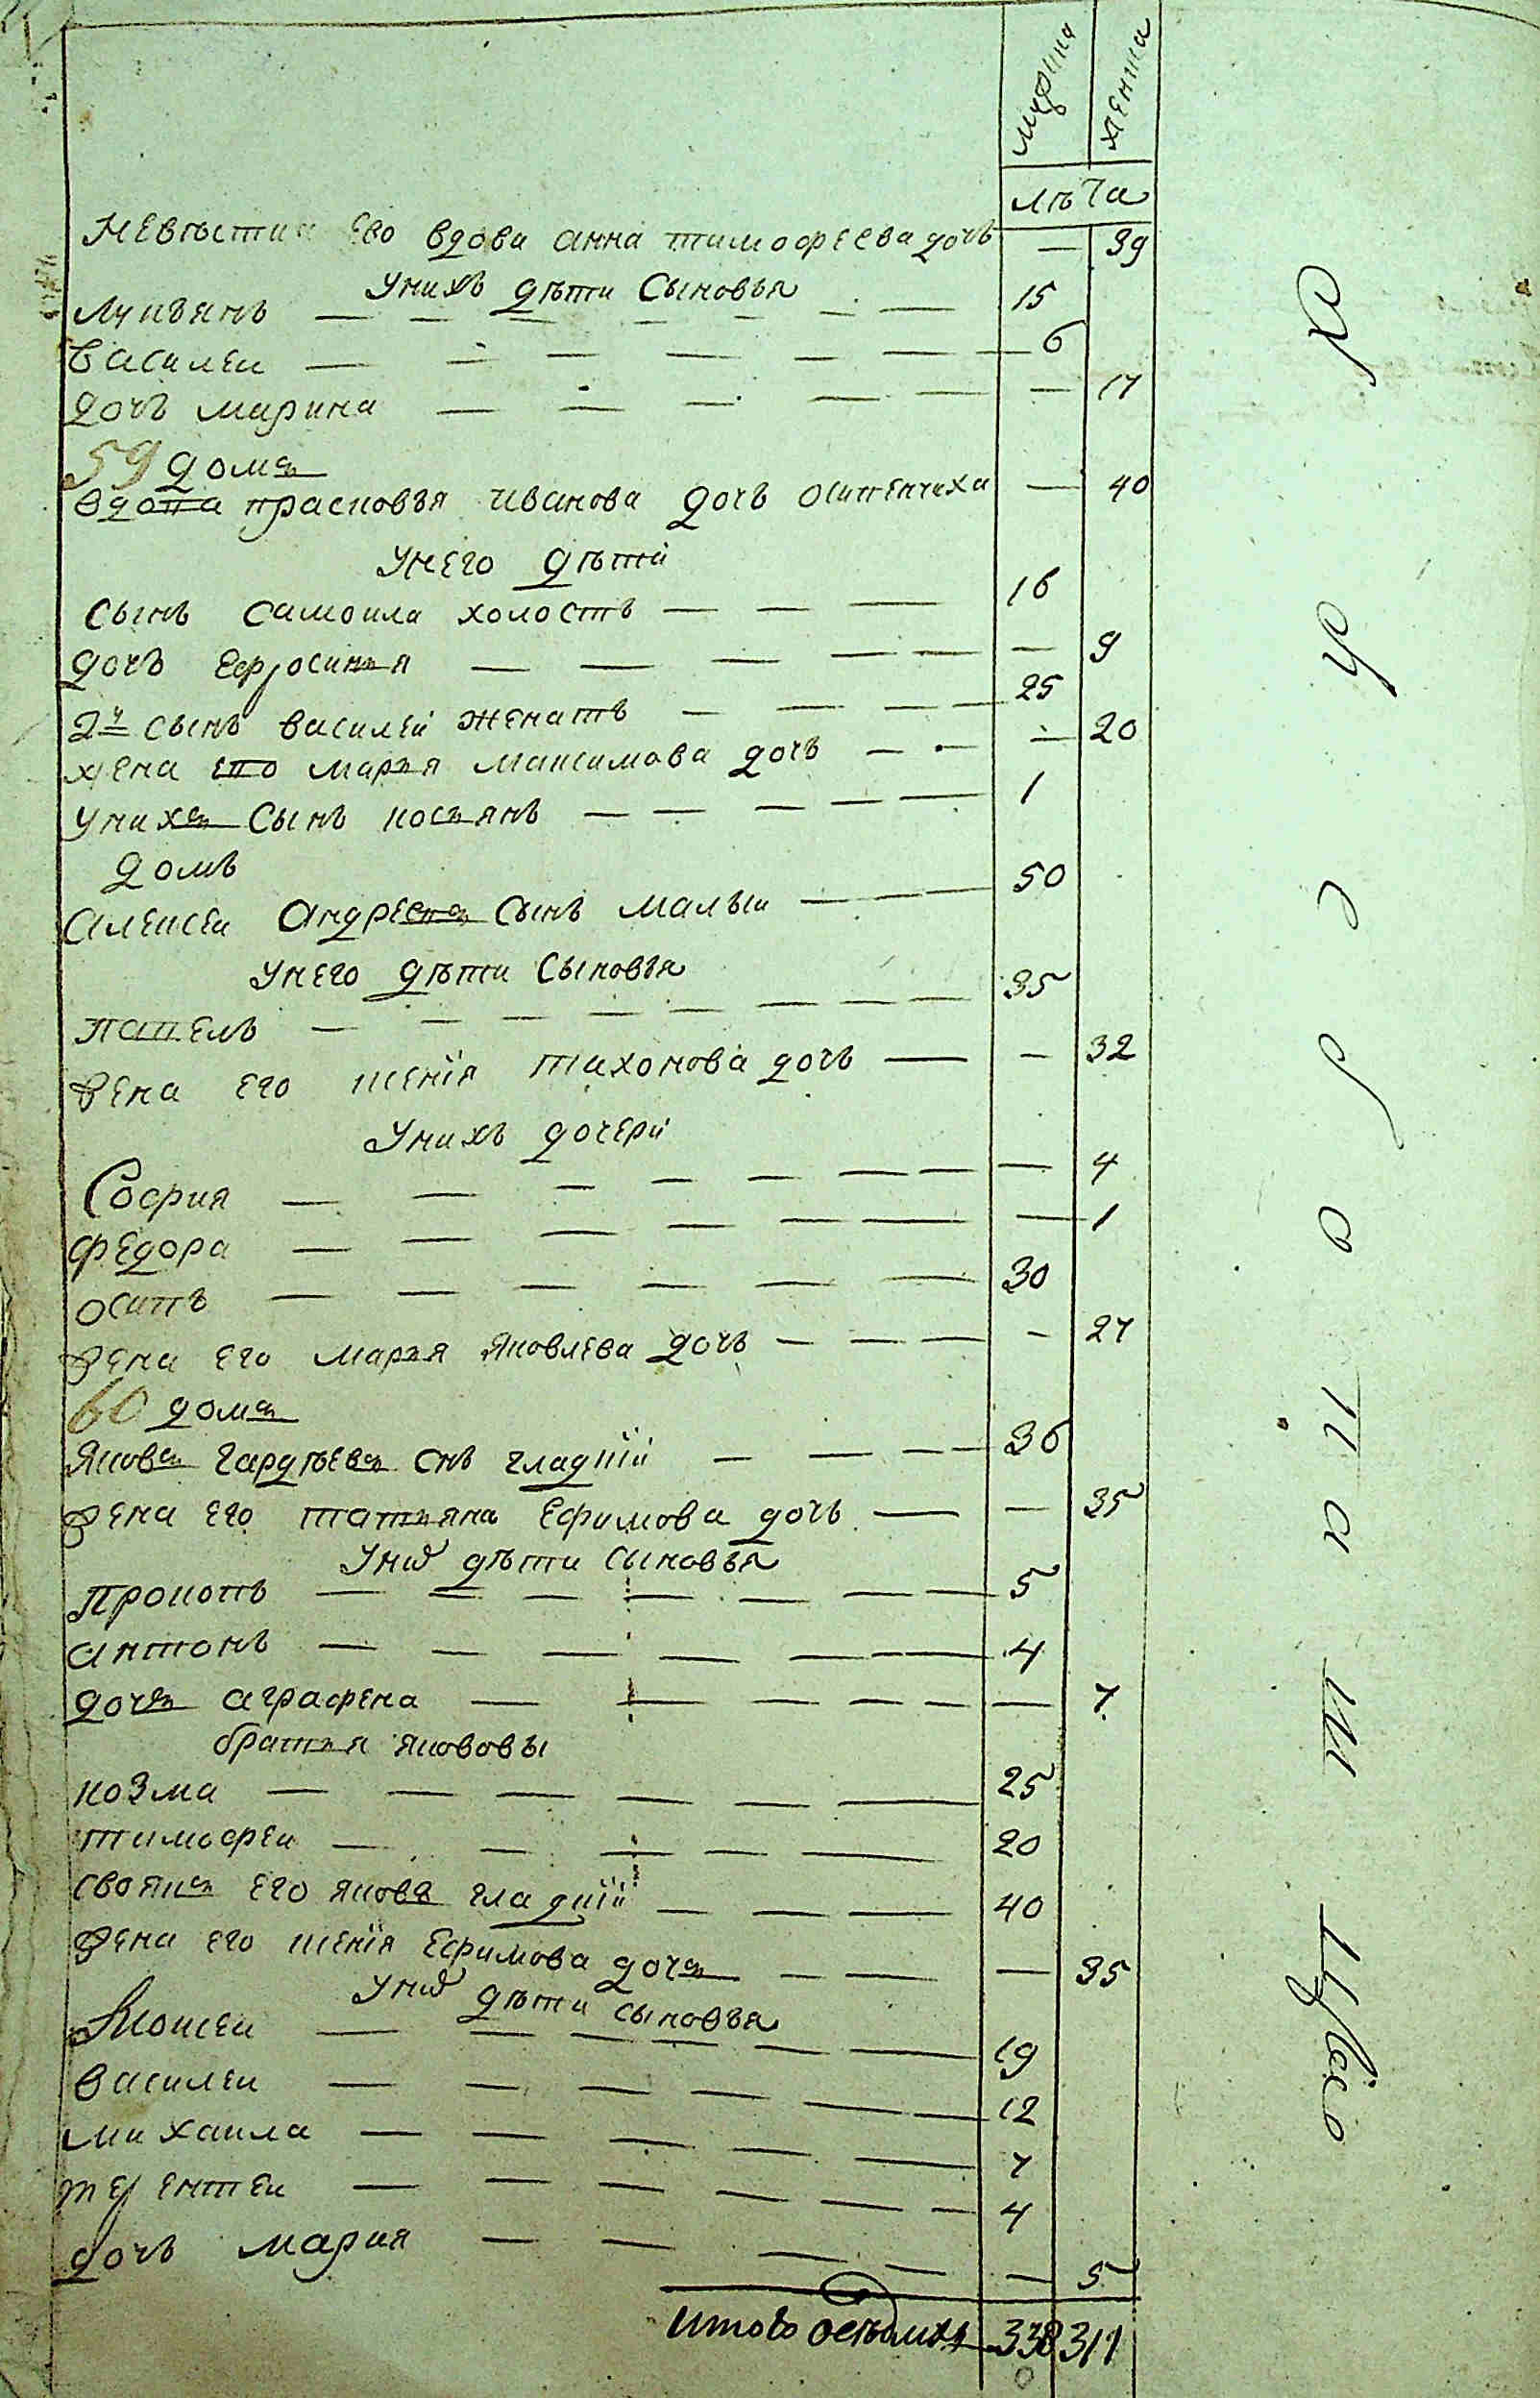 мужска женска
лѣта
Невѣстка ево вдова анна тимофеева дочь — 39
У нихъ дѣти Сыновья
Лукьянъ — 15
Василеи — 6
дочь марина — 17
59 домъ
Вдова прасковья иванова дочь осипенчиха — 40
У него дѣти
Сынъ Самоила холостъ — 16
дочь Ефросинья — 9
2й сынъ василей женатъ — 25
жена его марья максимова дочь — 20
У нихъ Сынъ косьянъ — 1
домъ
Алексеи Андреевъ Сынъ малыи — 50
У него дѣти Сыновья
павелъ — 35
жена его ксенїя тихонова дочь — 32
У нихъ дочери
София — 4
федора — 1
осипъ — 30
жена его марья яковлева дочь — 27
60 домъ
Яковъ гардѣевъ снъ гладкїй — 36
жена его татьяна Ефимова дочь — 35
У них дѣти Сыновья
прокопъ — 5
антонъ — 4
дочь аграфена — 7
братья якововы
козма — 25
тимофеи — 20
своякъ его якова гладкїй — 40
жена его ксенїя Ефимова дочь — 35
У них дѣти сыновья
Моисеи — 19
василеи — 12
михаила — 7
терентеи — 4
дочь мария — 5
итого 338 311